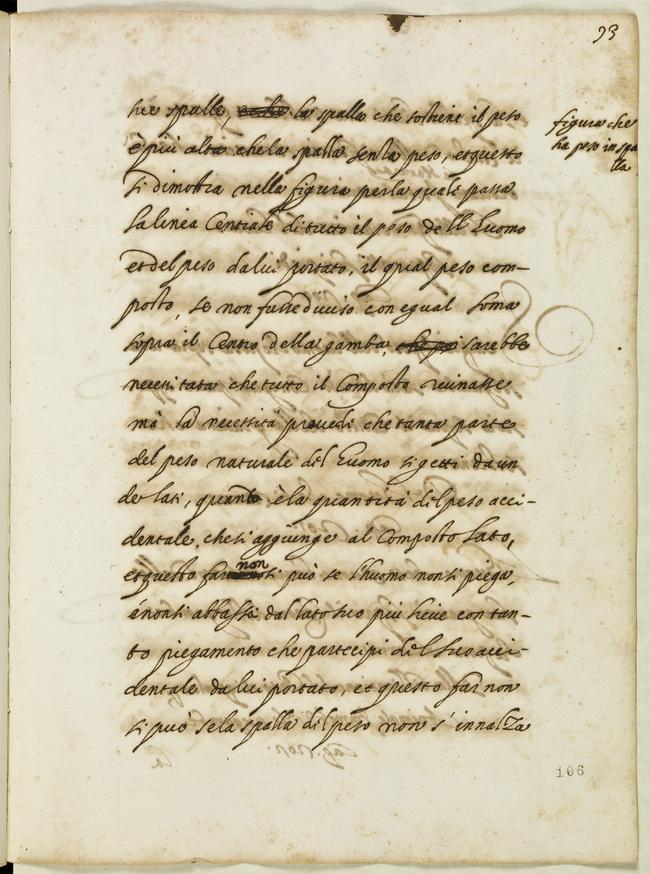 93
figura che
ha peso in spa
lla
hie spalle, la spalla che sostiene il peso
è più alta che la spalla senza peso, et questo
si dimostra nella figura per la quale passa
la linea Centrale di tutto il peso dell Luomo
et del peso da lui portato, il qual peso com-
posto, se non fusse diviso con egual soma
sopra il Centro della gamba, sarebbe
necessitata che tutto il Composto ruinasse
mà la necessità provede che tanta parte
del peso naturale del Luomo si getti da un
de lati, quanto è la quantità del peso acci-
dentale, che si aggiunge al Composto lato,
et questo far non si può se l'huomo non si piega,
é non si abbassi dal lato suo più lieve con tan-
to piegamento che partecipi del suo acci-
dentale da lui portato, et questo far non
si può se la spalla del peso non s'innalza
106